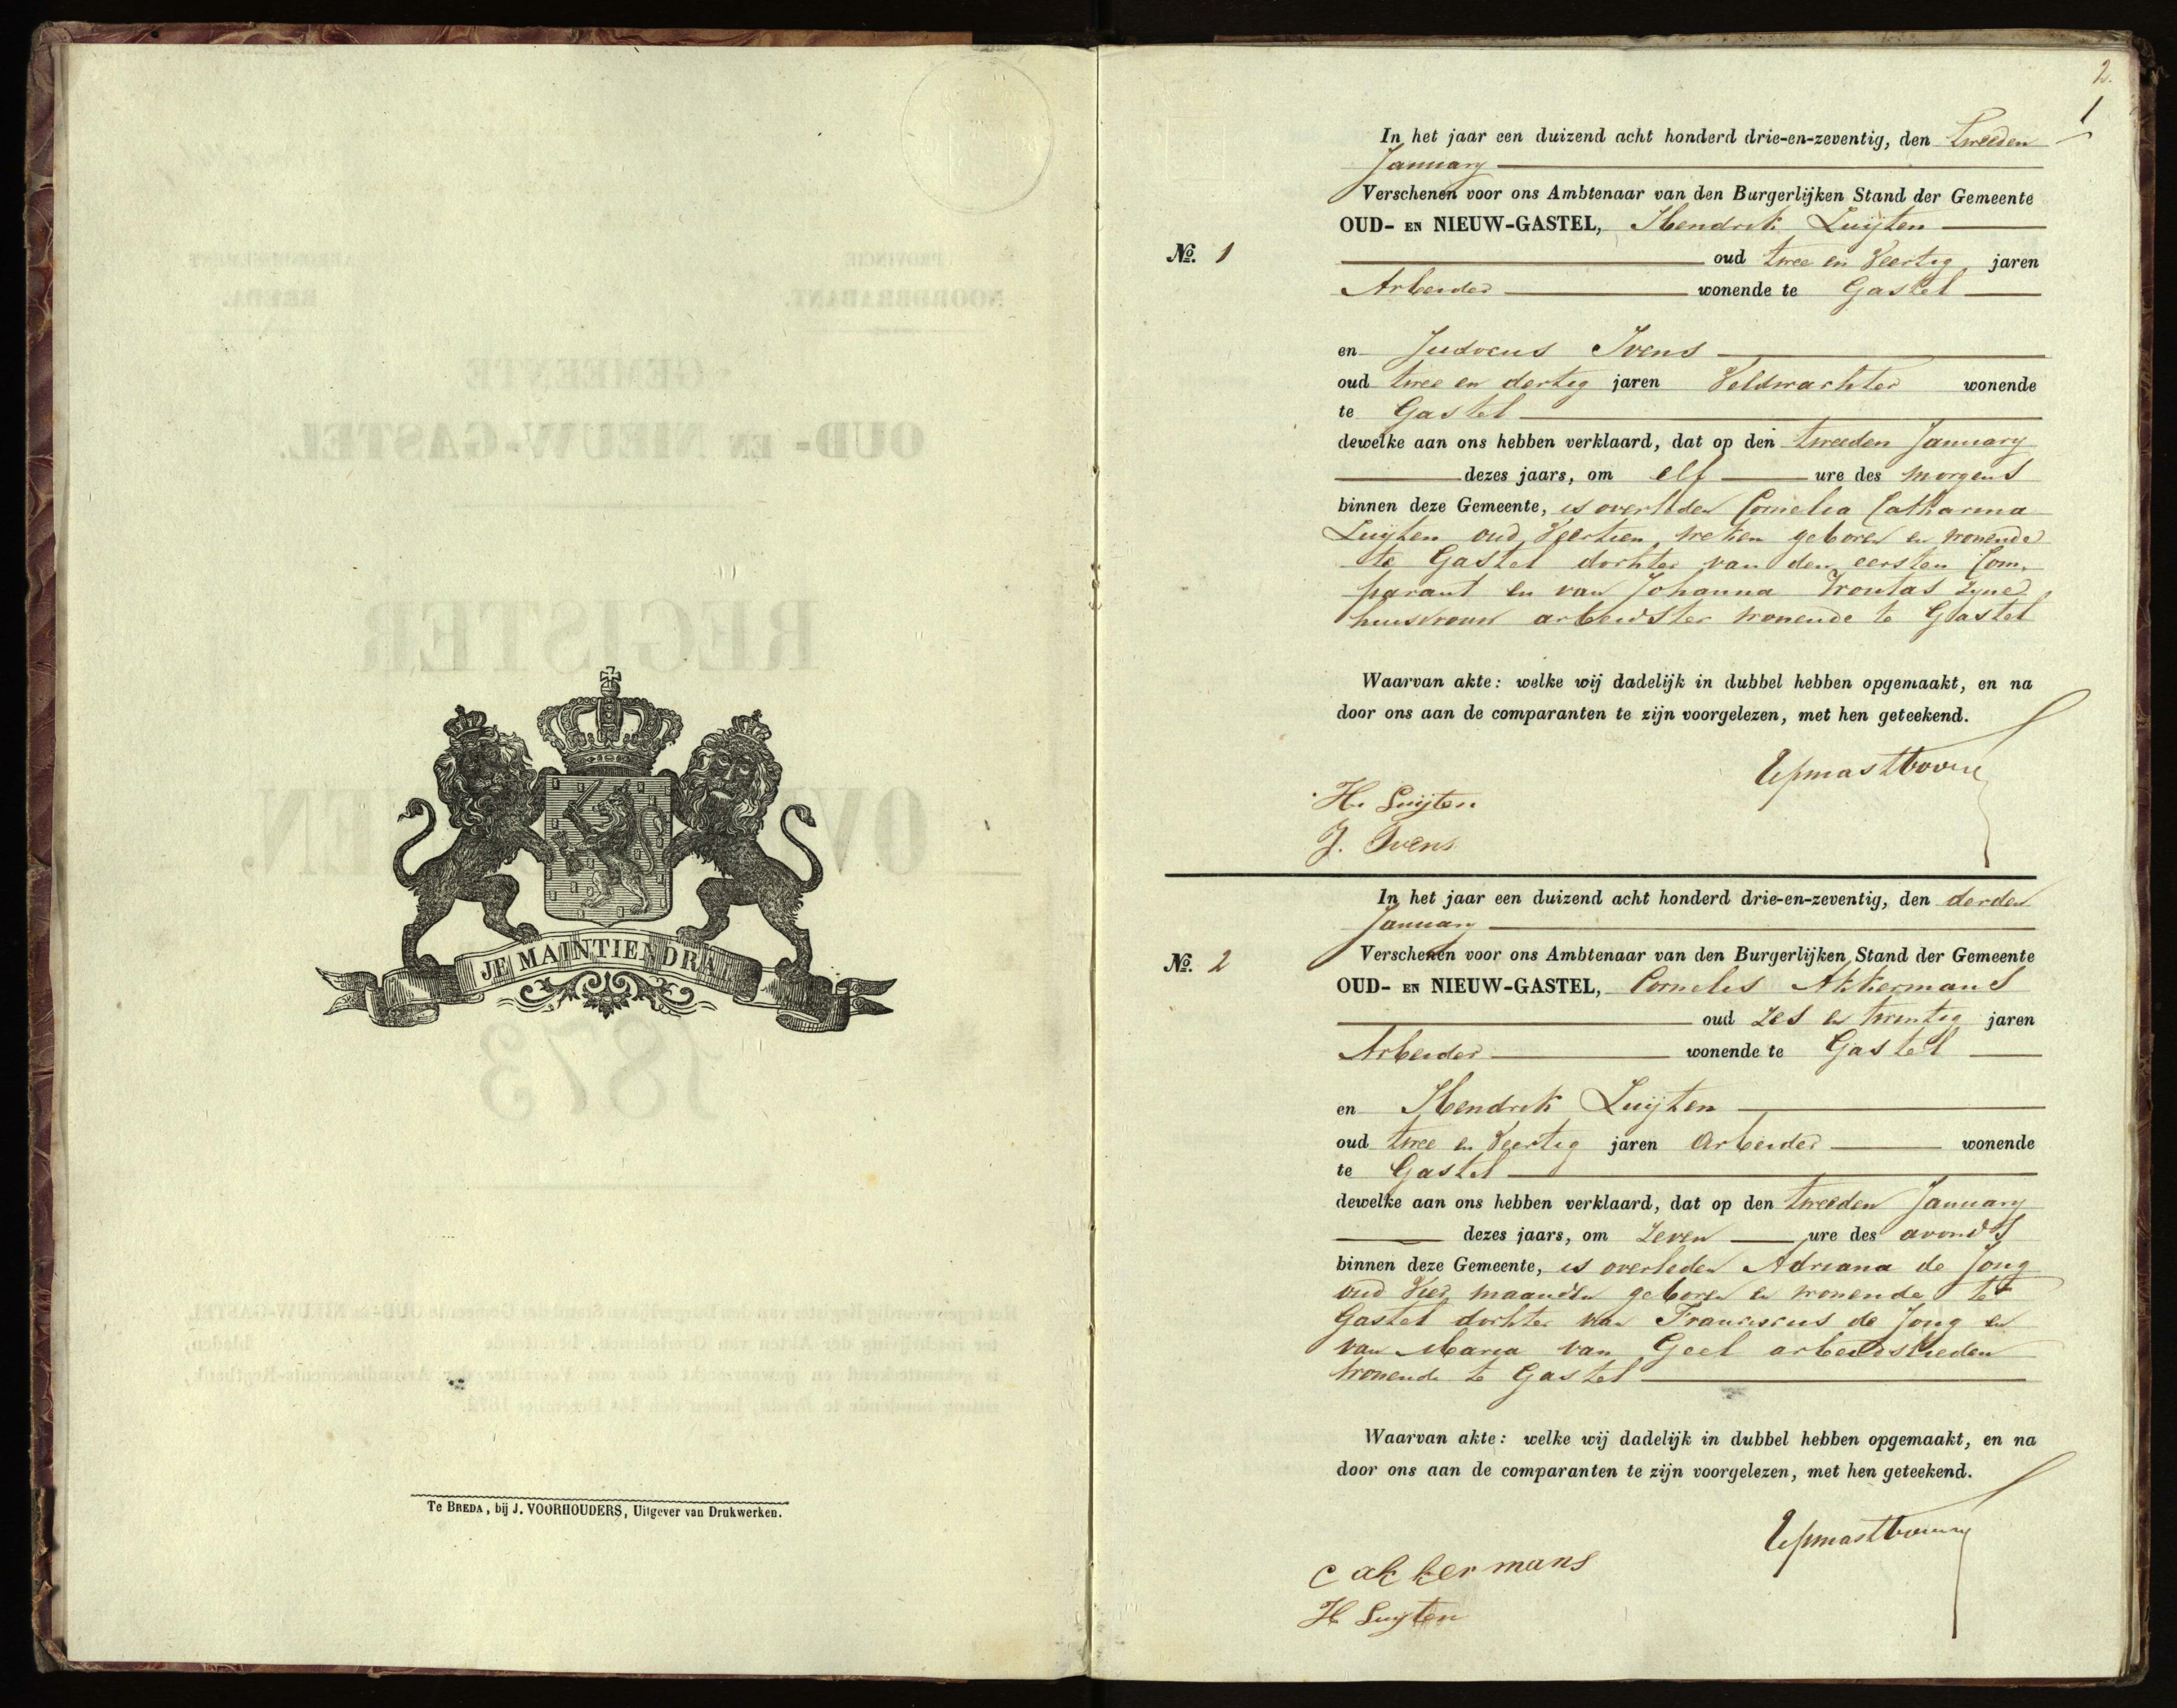 JE MAINTIENDRAI
Te BREDA, bij J. VOORHOUDERS, Uitgever van Drukwerken.
2.
1
In het jaar een duizend acht honderd drie-en-zeventig, den tweeden
January
Verschenen voor ons Ambtenaar van den Burgerlijken Stand der Gemeente
OUD- EN NIEUW-GASTEL, Hendrik Luijten
No. 1
oud twee en Veertig jaren
Arbeider wonende te Gastel
en Judocus Ivens
oud twee en dertig jaren Veldwachter wonende
te Gastel
dewelke aan ons hebben verklaard, dat op den tweeden January
dezes jaars, om elf ure des morgens
binnen deze Gemeente, is overleden Cornelia Catharina
Luijten oud Veertien weken geboren en wonende
te Gastel dochter van den eersten Com,
parant en van Johanna zyne
huisvrouw arbeidster wonende te Gastel
Waarvan akte: welke wij dadelijk in dubbel hebben opgemaakt, en na
door ons aan de comparanten te zijn voorgelezen, met hen geteekend.
H. Luijten
J. Ivens
In het jaar een duizend acht honderd drie-en-zeventig, den derden
January
No. 2
Verschenen voor ons Ambtenaar van den Burgerlijken Stand der Gemeente
OUD- EN NIEUW-GASTEL, Cornelis Akkermans
oud zes en twintig jaren
Arbeider wonende te Gastel
en Hendrik Luijten
oud twee en Veertig jaren Arbeider wonende
te Gastel
dewelke aan ons hebben verklaard, dat op den tweeden January
dezes jaars, om zeven ure des avonds
binnen deze Gemeente, is overleden Adriana de Jong
oud Vier maanden geboren en wonende te
Gastel dochter van Franciscus de Jong en
van Maria van Geel arbeidslieden
wonende te Gastel
Waarvan akte: welke wij dadelijk in dubbel hebben opgemaakt, en na
door ons aan de comparanten te zijn voorgelezen, met hen geteekend.
c akkermans
H Luyten